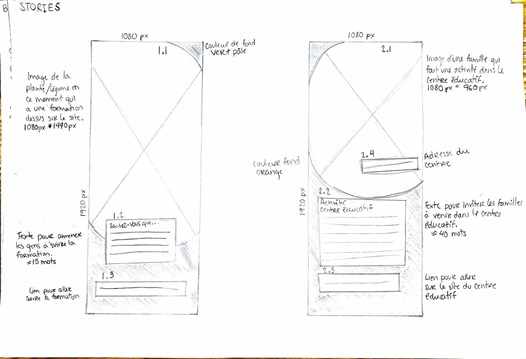 B STORIES
1080 px
1.1
Couleur de fond
VERT pâle
Image de la
plante/légume en
ce moment qui
a une formation
dessus sur le site.
1080px * 1440px
1920 px
1.2
Saviez-vous que...
Texte pour amener
les gens à suivre la
formation.
≈ 15 mots
1.3
Lien pour aller
suivre la formation
1080 px
2.1
Image d'une famille qui
fait une activité dans le
centre éducatif.
1080px * 960px
2.4
Adresse du
centre
Couleur fond
orange
2.2
Activité
centre éducatif
1920 px
Texte pour inviter les familles
à venir dans le centre
éducatif.
≈ 40 mots
2.3
Lien pour aller
sur le site du centre
éducatif